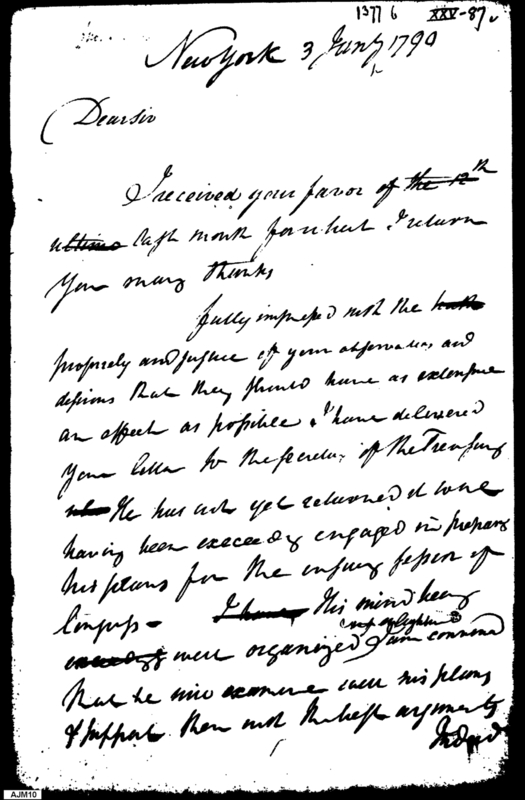 1377 6 XXV-87.
New York 3 Jany 1790
Dear sir
I received your favor of the 12th
ultimo last month for which I return
you many thanks
fully impressed with the truth
propriety and justice of your observations and
desirous that they should have as extensive
an effect as possible I have delivered
your letter to the Secretary of the Treasury
who He has not yet returned it to me
having been exceedy engaged in preparing
his plans for the ensuing session of
Congress – I have, His mind being
well organized I am convinced
that he will examine well his plans
& support them with the best arguments
Indeed
AJM10